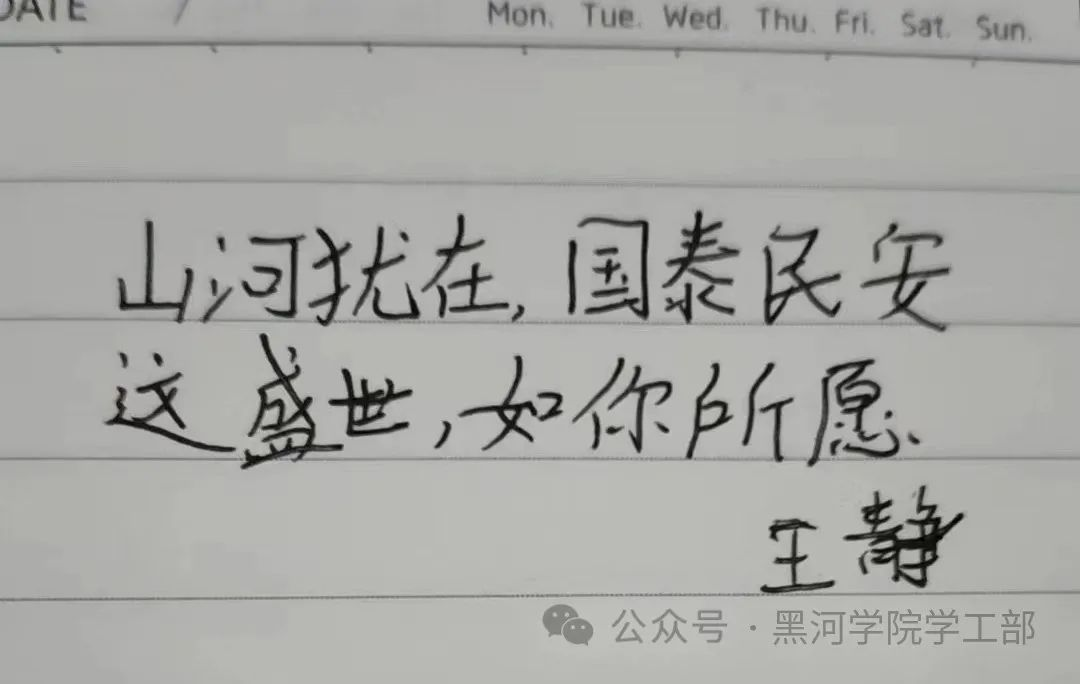 DATE /
Mon. Tue. Wed. Thu. Fri. Sat. Sun.
山河犹在,国泰民安
这盛世,如你所愿.
王静
公众号·黑河学院学工部